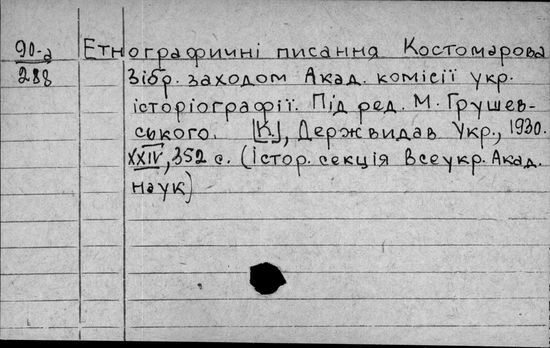 90-а Етнографичні писання Костомарова
288 Зібр. заходом Акад. комісії укр.
історіографії. Під ред. М. Грушев-
ського. [К.], Держвидав Укр., 1930.
XXIV, 352 с. (Істор. секція Всеукр. Акад.
наук)